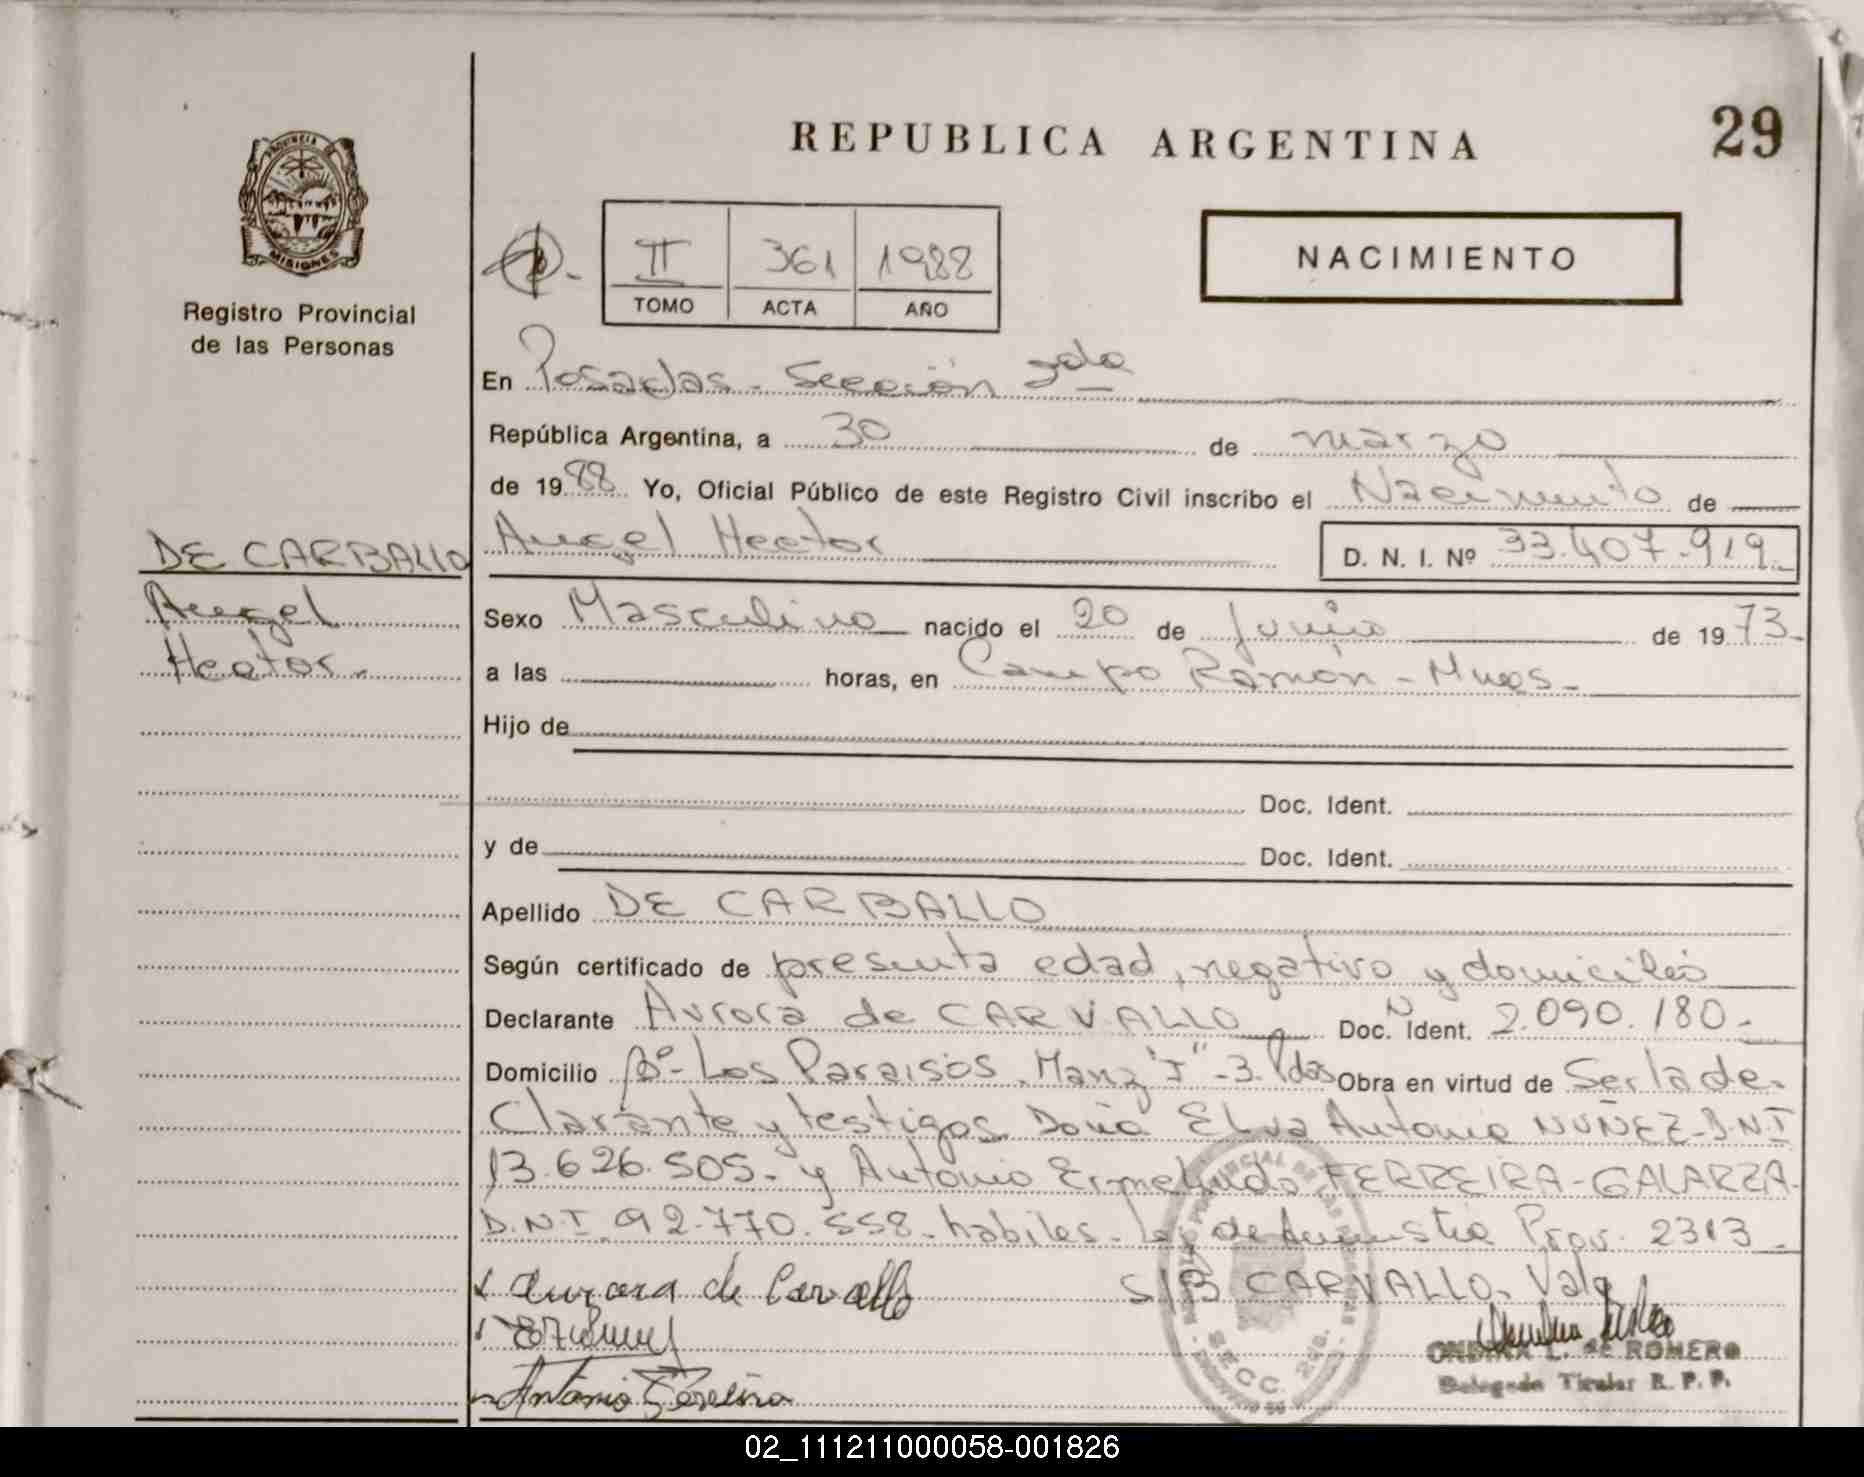 REPUBLICA ARGENTINA
29
PROVINCIA DE
MISIONES
Registro Provincial
de las Personas
II
361
1988
TOMO
ACTA
AÑO
NACIMIENTO
En Posadas - Sección 2da
República Argentina, a 30 de marzo
de 1988 Yo, Oficial Público de este Registro Civil inscribo el Nacimiento de
Angel Hector
D. N. I. Nº 33.407.919
DE CARBALLO
Angel
Hector.
Sexo Masculino nacido el 20 de Junio de 1973.
a las horas, en Campo Ramón - Mnes.
Hijo de
Doc. Ident.
y de Doc. Ident.
Apellido DE CARBALLO
Según certificado de presunta edad, negativo y domicilio
Declarante Aurora de CARVALLO Doc. Ident. N 2.090.180-
Domicilio Bº- Los Paraisos. Manz "I" - 3. Pdas Obra en virtud de Ser la de-
clarante y testigos Doña Elva Antonia NUÑEZ - D.N.I
13.626.505- y Antonio Ermelindo FERREIRA-GALARZA-
D.N.I. 92.770.558- habiles- Ley de Amnistia Prov. 2313-
S/B CARVALLO. Vale
Aurora de Carvallo
Antonio Ferreira
SECC. 2da.
ONDINA L. de ROMERO
Delegado Titular R. P. P.
02_111211000058-001826